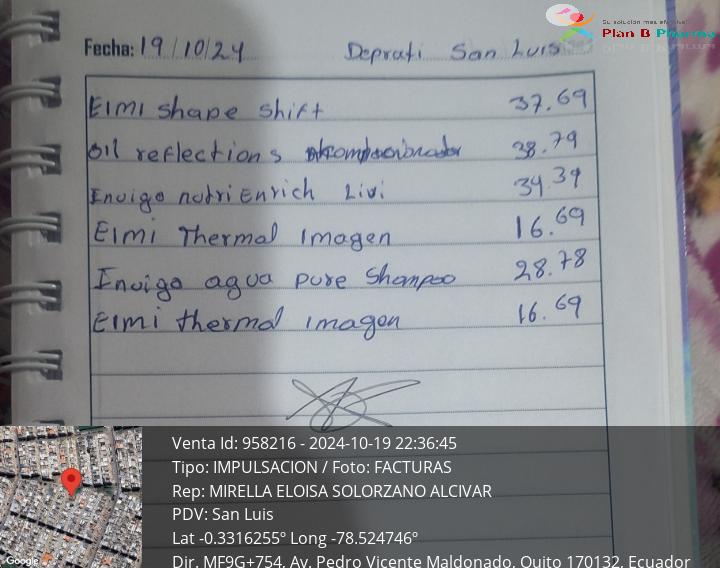 Su solución más efectiva!
Plan B Pharma
Fecha: 19/10/24 Deprati San Luis
EIMI shape shift 37.69
Oil reflections 38.79
Invigo nutriEnrich Livi 34.39
EIMI Thermal Imagen 16.69
Invigo aqua pure Shampoo 28.78
EIMI thermal imagen 16.69
Venta Id: 958216 - 2024-10-19 22:36:45
Tipo: IMPULSACION / Foto: FACTURAS
Rep: MIRELLA ELOISA SOLORZANO ALCIVAR
PDV: San Luis
Lat -0.3316255º Long -78.524746º
Dir. MF9G+754, Av. Pedro Vicente Maldonado, Quito 170132, Ecuador
Google